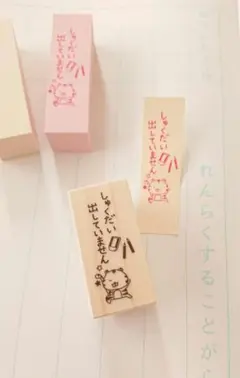 しゅくだい
出していません
しゅくだい
出していません
しゅくだい
出していません
れんらくすることが